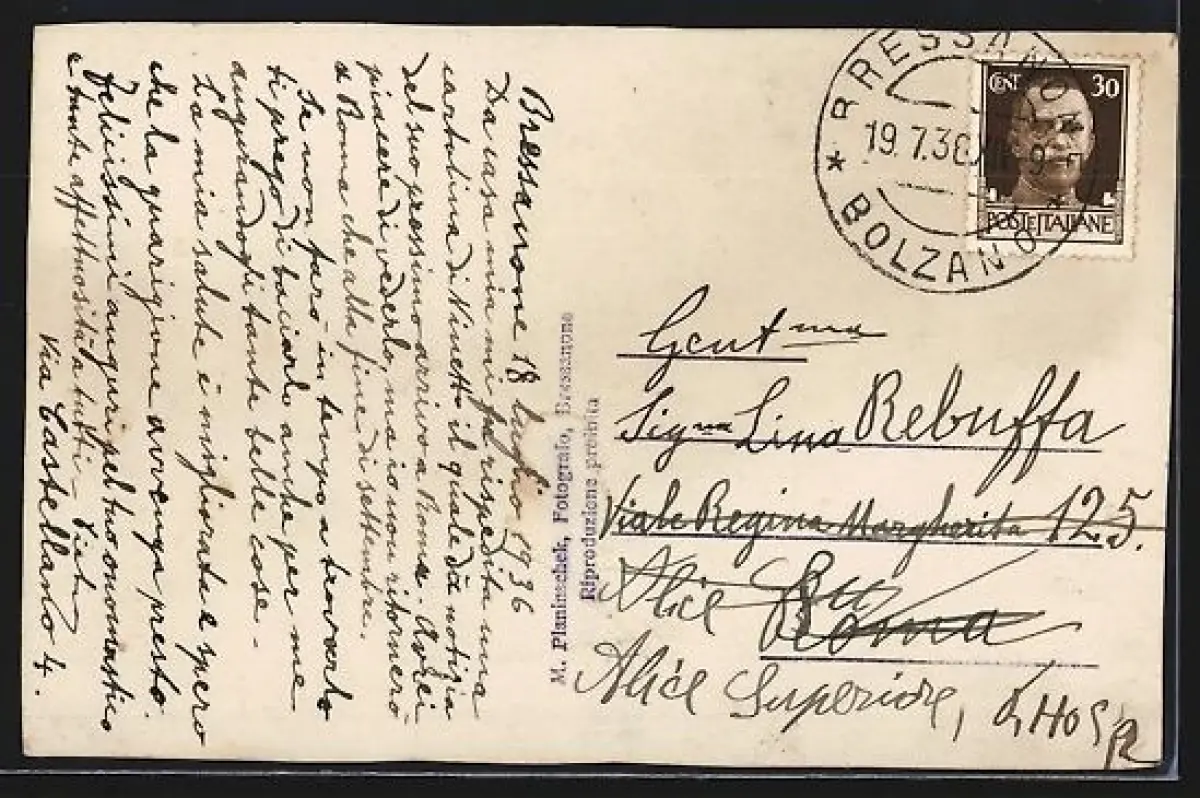 Bressanone 18 luglio 1936
Da casa mia mi fu rispedita una
cartolina di Ninetto il quale dà notizia
del suo prossimo arrivo a Roma. Avrei
piacere di vederlo, ma io non ritornerò
a Roma che alla fine di settembre.
Se non farò in tempo a trovarlo
ti prego di baciarlo anche per me
augurandogli tante belle cose -
La mia salute è migliorata e spero
che la guarigione avvenga presto.
Felicissimi auguri pel tuo onomastico
e tante affettuosità a tutti -
Via Castellano 4.
M. Planinschek, Fotografo, Bressanone
Riproduzione proibita
BRESSANONE
19.7.36
* BOLZANO *
CENT 30
POSTE ITALIANE
Gent ma
Sig na Lina Rebuffa
Viale Regina Margherita 125.
Alice Su
Roma
Alice Superiore,